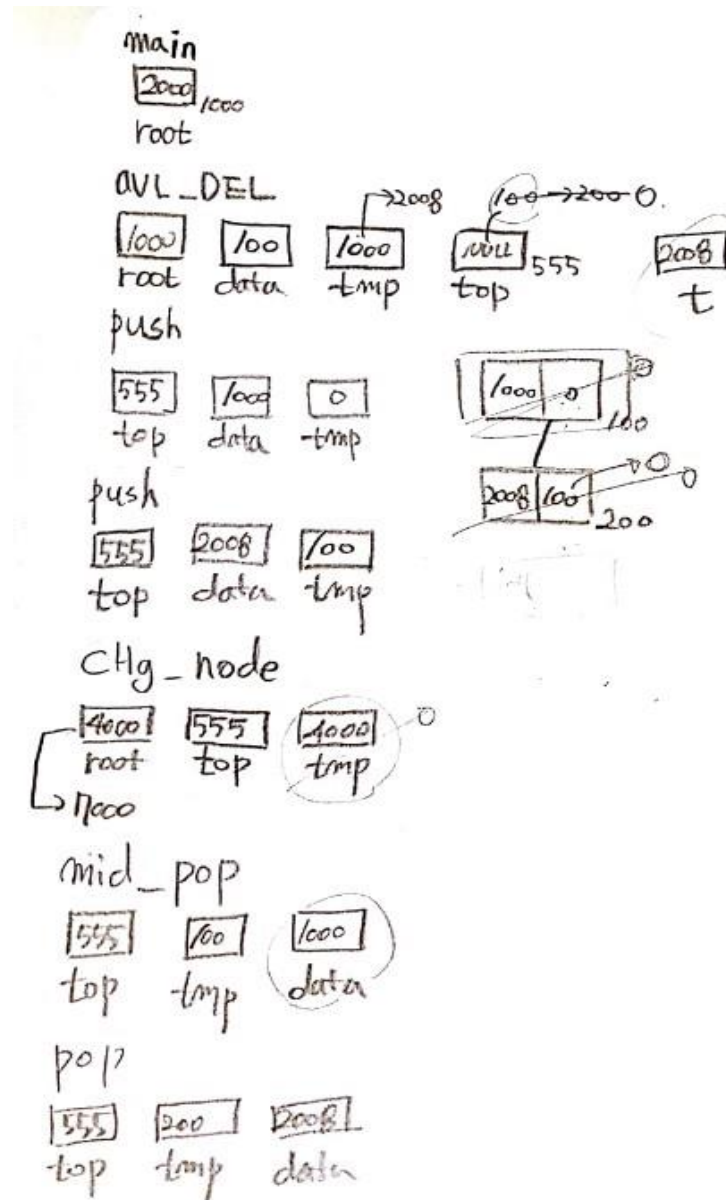 main
2000 1000
root
AVL_DEL
→2008 100→200→0
1000 100 1000 NULL 555 2008
root data tmp top t
push
555 1000 0 1000 0 0
top data tmp 100
push 2008 100 →0 0
555 2008 100 200
top data tmp
CHg_node
4000 555 4000 0
root top tmp
→7000
mid_pop
555 100 1000
top tmp data
pop
555 200 2008
top tmp data